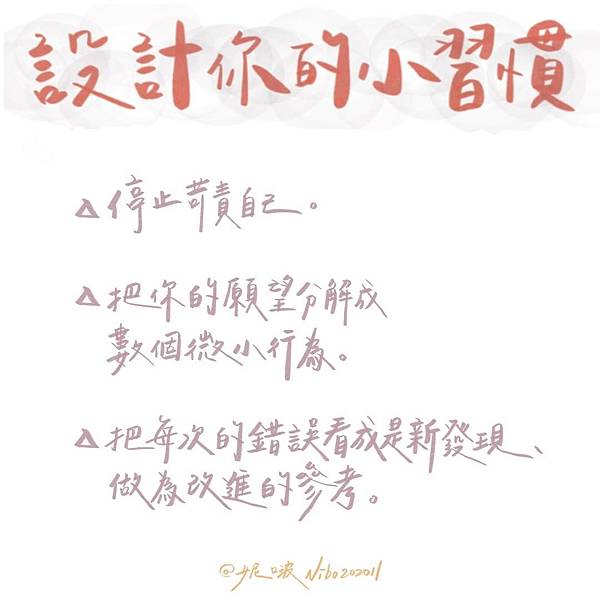 設計你的小習慣
△停止苛責自己。
△把你的願望分解成
數個微小行為。
△把每次的錯誤看成是新發現、
做為改進的參考。
@妮啵 Nibo202011